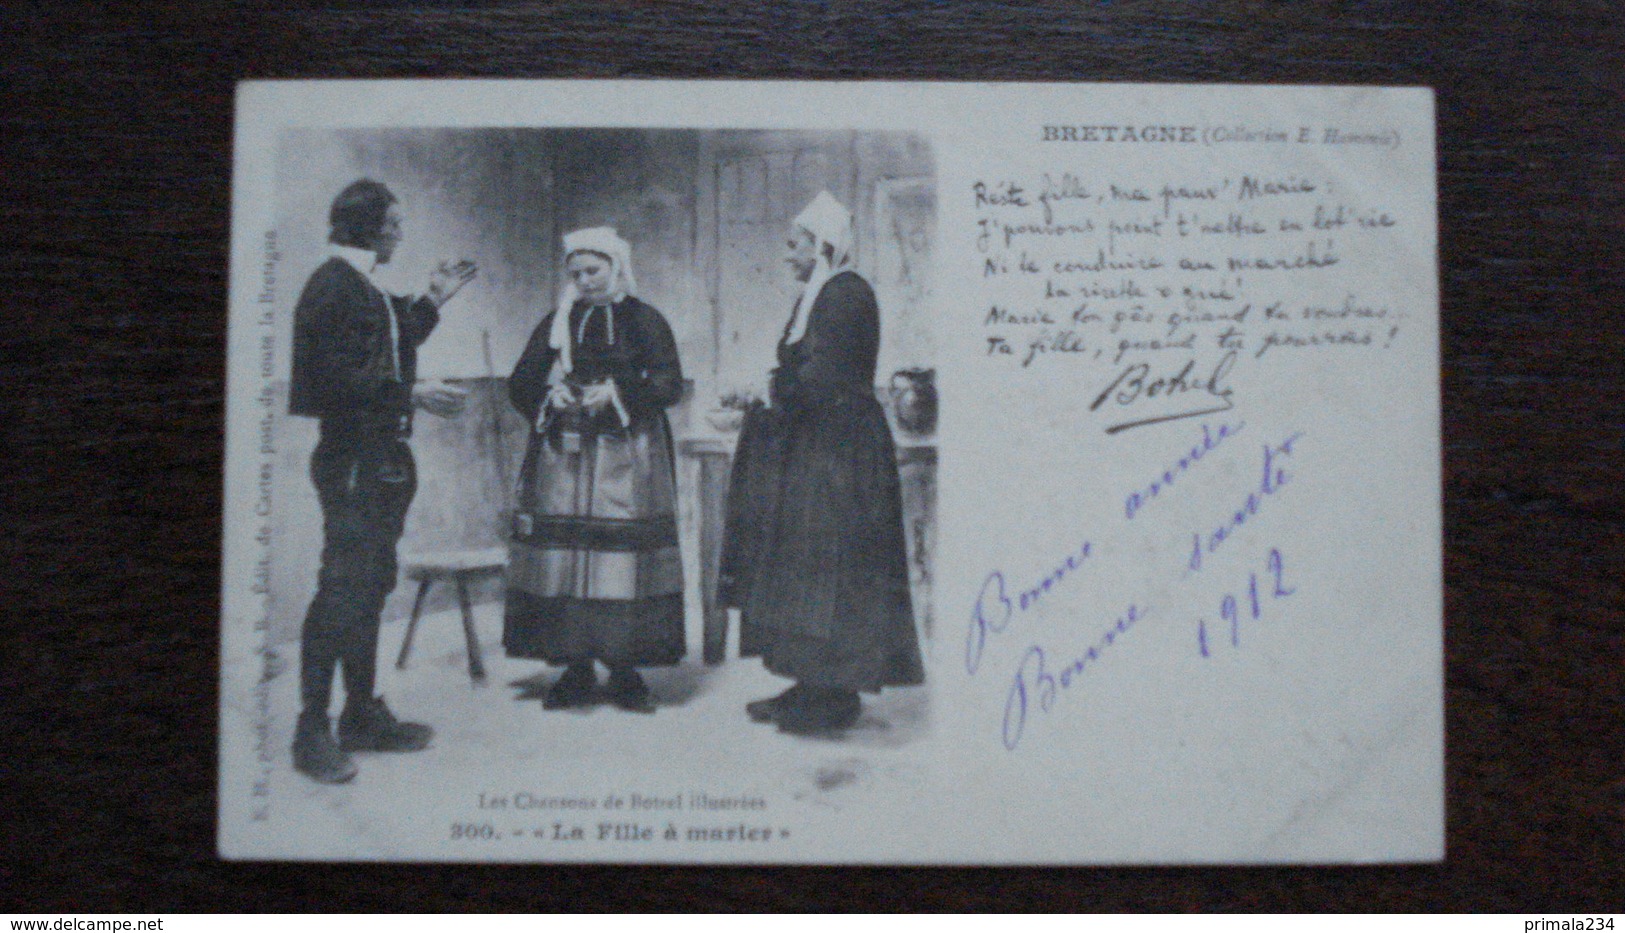 BRETAGNE (Collection E. Hamonic)
Reste fille, ma pauv' Marie :
J'pouvons point t'mettre en lot'rie
Ni te conduire au marché
La risette ô gué !
Marie ton gâs quand tu voudras...
Ta fille, quand tu pourras !
Botrel
Bonne année
Bonne santé
1912
E. H., phot. édit. de Cartes post. de toute la Bretagne
Les Chansons de Botrel illustrées
300. - « La Fille à marier »
www.delcampe.net
primala234